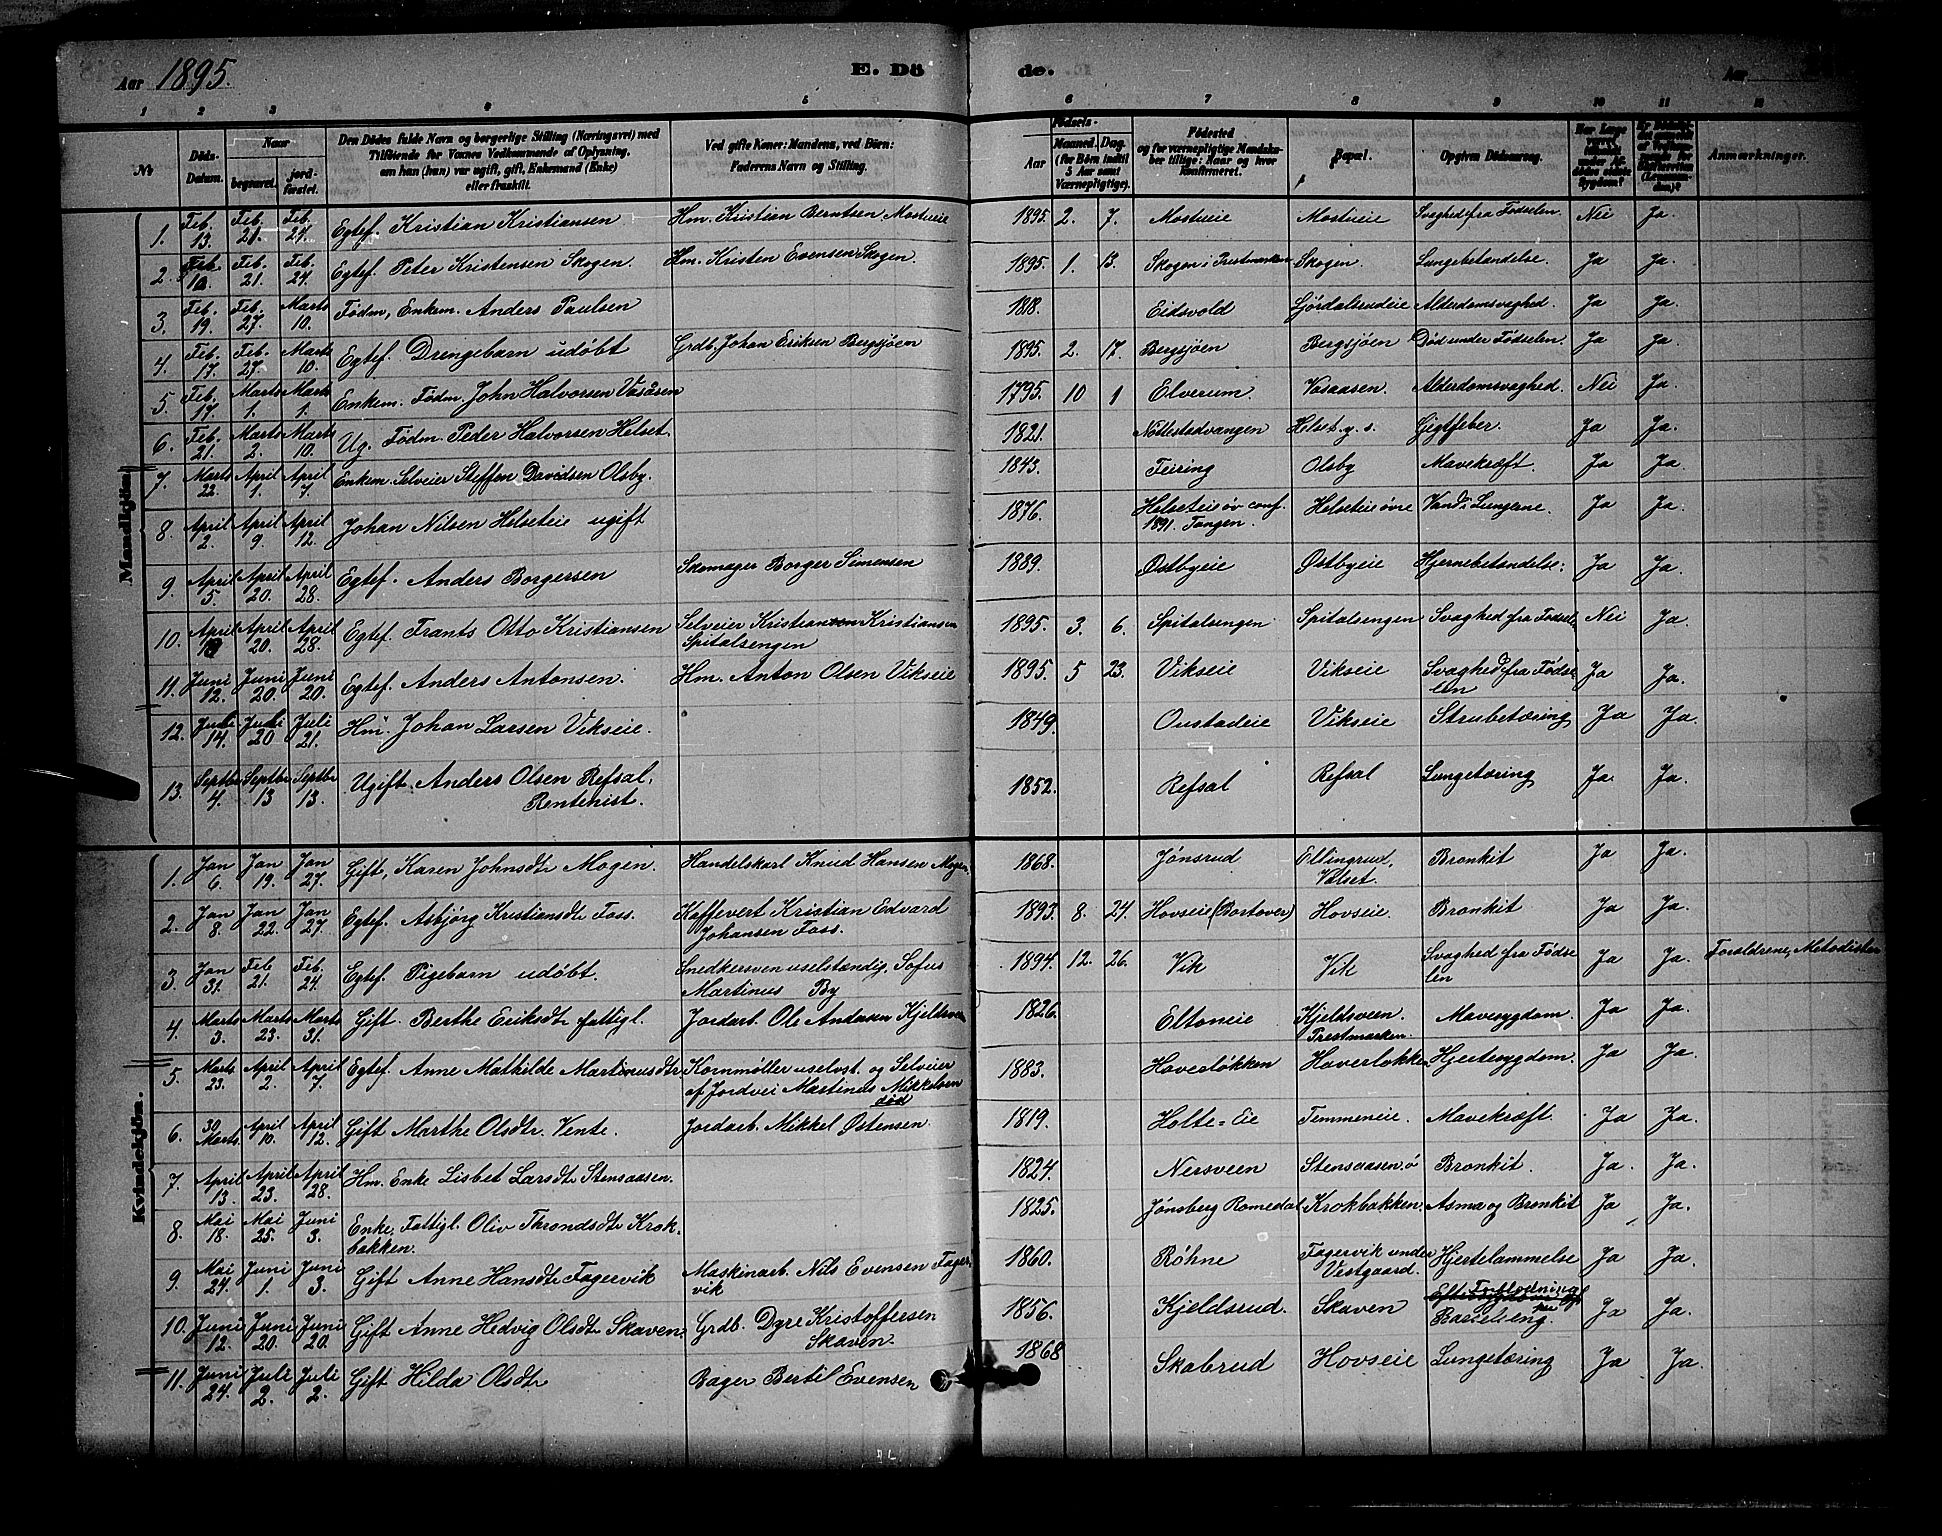 Aar 1895. E. Dö de. Aar
1 2 3 4 5 6 7 8 9 10 11 12
No Döds-Datum. Naar begravet. jordfæstet. Den Dödes fulde Navn og borgerlige Stilling (Næringsvei) med Tilföiende for Voxnes Vedkommende af Oplysning, om han (hun) var ugift, gift, Enkemand (Enke) eller fraskilt. Ved gifte Koner: Mandens, ved Börn: Faderens Navn og Stilling. Födsels- Aar Maaned. Dag. (for Börn indtil 5 Aar samt Værnepligtige). Födested og for værnepligtige Mandskaber tillige: Naar og hvor konfirmeret. Bopæl. Opgiven Dödsaarsag. Anmærkninger.
Mandkjön.
1. Feb. 13. Feb. 21. Feb. 24. Egtef. Kristian Kristiansen Hm. Kristian Berntsen Mostueie 1895. 2. 7. Mostueie Mostueie Svaghed fra Fødselen Nei Ja.
2. Feb. Feb. 21. Feb. 24. Egtef. Peter Kristensen Skogen. Hm. Kristen Evensen Skogen 1895. 1. 13. Skogen i Prestmarken Skogen. Lungebetændelse. Ja Ja.
3. Feb. 19. Feb. 27. Marts 10. Fødm, Enkem. Anders Paulsen 1818. Eidsvold Alderdomsvaghed. Ja Ja.
4. Feb. 17. Feb. 27. Marts 10. Egtef. Drengebarn udøbt Grdb. Johan Eriksen Bergsjøen 1895. 2. 17. Bergsjøen Bergsjöen Død under Fødselen. Ja Ja.
5. Feb. 17. Marts 1. Marts 1. Enkem. Fødm. John Halvorsen Vasåsen 1795. 10 1 Elverum. Vasaasen. Alderdomsvaghed. Nei Ja.
6. Feb. 21. Marts 2. Marts 10. Ug. Fødm. Peder Halvorsen Helset. 1821. Nøttestadvangen Helset. y. s. Gigtfeber. Ja Ja.
7. Marts 22. April 1. April 7. Enkem. Selveier Steffen Davidsen Olsby. 1843. Feiring Olsby Mavekræft. Ja Ja.
8. April 2. April 9. April 12. Johan Nilsen Helseteie ugift 1876. Helseteie øv conf. Helseteie øvre Vand i Lungerne. Ja Ja.
1891. Tangen.
9. April 5. April 20. April 28. Egtef. Anders Borgersen Skomager Borger Simensen 1889. Østbyeie Østbyeie Hjernebetændelse: Ja Ja.
10. April April 20. April 28. Egtef. Frants Otto Kristiansen Selveier Kristian Kristiansen 1895. 3. 6. Spitalsengen Spitalsengen Svaghed fra Fødselen Nei Ja.
Spitalsengen
11. Juni 12. Juni 20. Juni 20. Egtef. Anders Antonsen. Hm. Anton Olsen Vikseie 1895. 5 23. Vikseie Vikseie Svaghed fra Fødse Ja Ja.
len
12. Juli 14. Juli 20 Juli 21. Hm. Johan Larsen Vikseie. 1849. Onstadeie Vikseie Strubetæring Ja Ja.
13. Septbr 4. Septbr 13 Septbr 13. Ugift. Anders Olsen Refsal. 1852. Refsal Refsal Lungetæring Ja Ja.
Rentenist.
Kvindekjön.
1. Jan 6. Jan 19. Jan 27. Gift, Karen Johnsdtr Mogen. Handelskarl Knud Hansen Mogen. 1868. Jønsrud Ellingrud, Bronkit Ja Ja.
Valset.
2. Jan 8. Jan 22. Jan 27. Egtef. Asbjørg Kristiansdtr Foss. Koffevert Kristian Edvard 1893. 8. 24. Hovseie (Bortover) Hovseie. Bronkit Ja Ja.
Johansen Foss.
3. Jan 31. Feb 21. Feb. 24. Egtef. Pigebarn udøbt. Snedkersven uselstændig Sofus 1894. 12. 26. Vik Vik Svaghed fra Fødse Ja Ja. Forældrene, Metodister
Martinus By len
4. Marts 3. Marts 23. Marts 31. Gift. Berthe Eriksdtr fattigl. Jordarb. Ole Andersen Kjeldsveen 1826. Eltoneie Kjeldsveen. Mavesygdom. Ja Ja.
Prestmarken
5. Marts 23. April 2. April 7. Egtef. Anne Mathilde Martinusdtr. Kornmøller uselvst. og Selveier 1883. Haverløkken Haverløkken Hjertesygdom. Ja Ja.
af Jordvei Martinus Mikkelsen
død
6. 30 Marts. April 10. April 12. Gift Marthe Olsdtr. Vente. Jordarb. Mikkel Østensen 1819. Holte=Eie Temmeneie. Mavekræft. Ja Ja.
7. April 13. April 23. April 28. Hm. Enke Lisbet Larsdtr Stensaasen. 1824. Nersveen Stensaasen. ø Bronkit. Ja. Ja.
8. Mai 18. Mai 25. Juni 3. Enke, Fattigl. Oliv Throndsdtr Krok- 1825. Jønsberg Romedal Krokbakken. Asma og Bronkit Ja Ja.
bakken.
9. Mai 24. Juni 1. Juni 3. Gift Anne Hansdtr Fagervik Maskinarb. Nils Evensen Fager- 1860. Røhne Fagervik under Hjertelammelse Ja Ja.
vik Vestgaard.
10. Juni 12. Juni 20. Juni 20. Gift Anne Hedvig Olsdtr Skaven. Grdb. Dyre Kristoffersen 1856. Kjeldsrud. Skaven Forblødning Ja Ja.
Skaven. Barselseng.
11. Juni 24. Juli 2. Juli 2. Gift Hilda Olsdtr Bager Bertil Evensen 1868 Skabrud Hovseie Lungetæring Ja Ja.